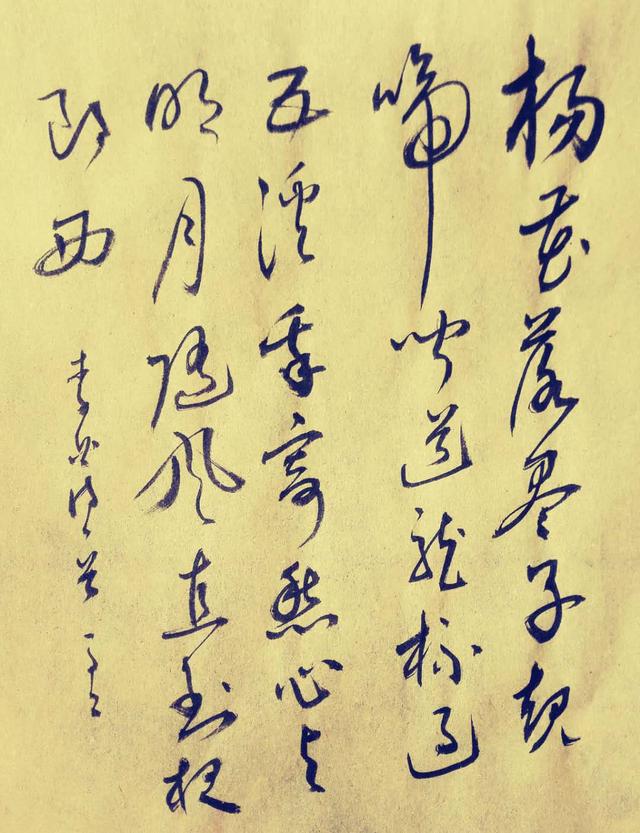 杨花落尽子规
啼闻道龙标过
五溪我寄愁心与
明月随风直到夜
郎西
李白诗